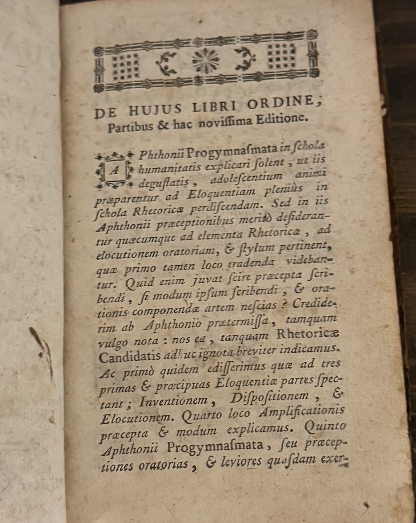 DE HUJUS LIBRI ORDINE,
Partibus & hac noviſſima Editione.
APhthonii Progymnaſmata in ſchola
humanitatis explicari ſolent, ut iis
deguſtatis, adoleſcentium animi
præparentur ad Eloquentiam pleniùs in
ſchola Rhetoricæ perdiſcendam. Sed in iis
Aphthonii præceptionibus meritò deſideran-
tur quæcumque ad elementa Rhetoricæ, ad
elocutionem oratoriam, & ſtylum pertinent,
quæ primo tamen loco tradenda videban-
tur. Quid enim juvat ſcire præcepta ſcri-
bendi, ſi modum ipſum ſcribendi, & ora-
tionis componendæ artem neſcias? Credide-
rim ab Aphthonio prætermiſſa, tamquam
vulgo nota: nos ea, tanquam Rhetoricæ
Candidatis adhuc ignota breviter indicamus.
Ac primò quidem ediſſerimus quæ ad tres
primas & præcipuas Eloquentiæ partes ſpec-
tant; Inventionem, Diſpoſitionem, &
Elocutionem. Quarto loco Amplificationis
præcepta & modum explicamus. Quinto
Aphthonii Progymnaſmata, ſeu præcep-
tiones oratorias, & leviores quaſdam exer-